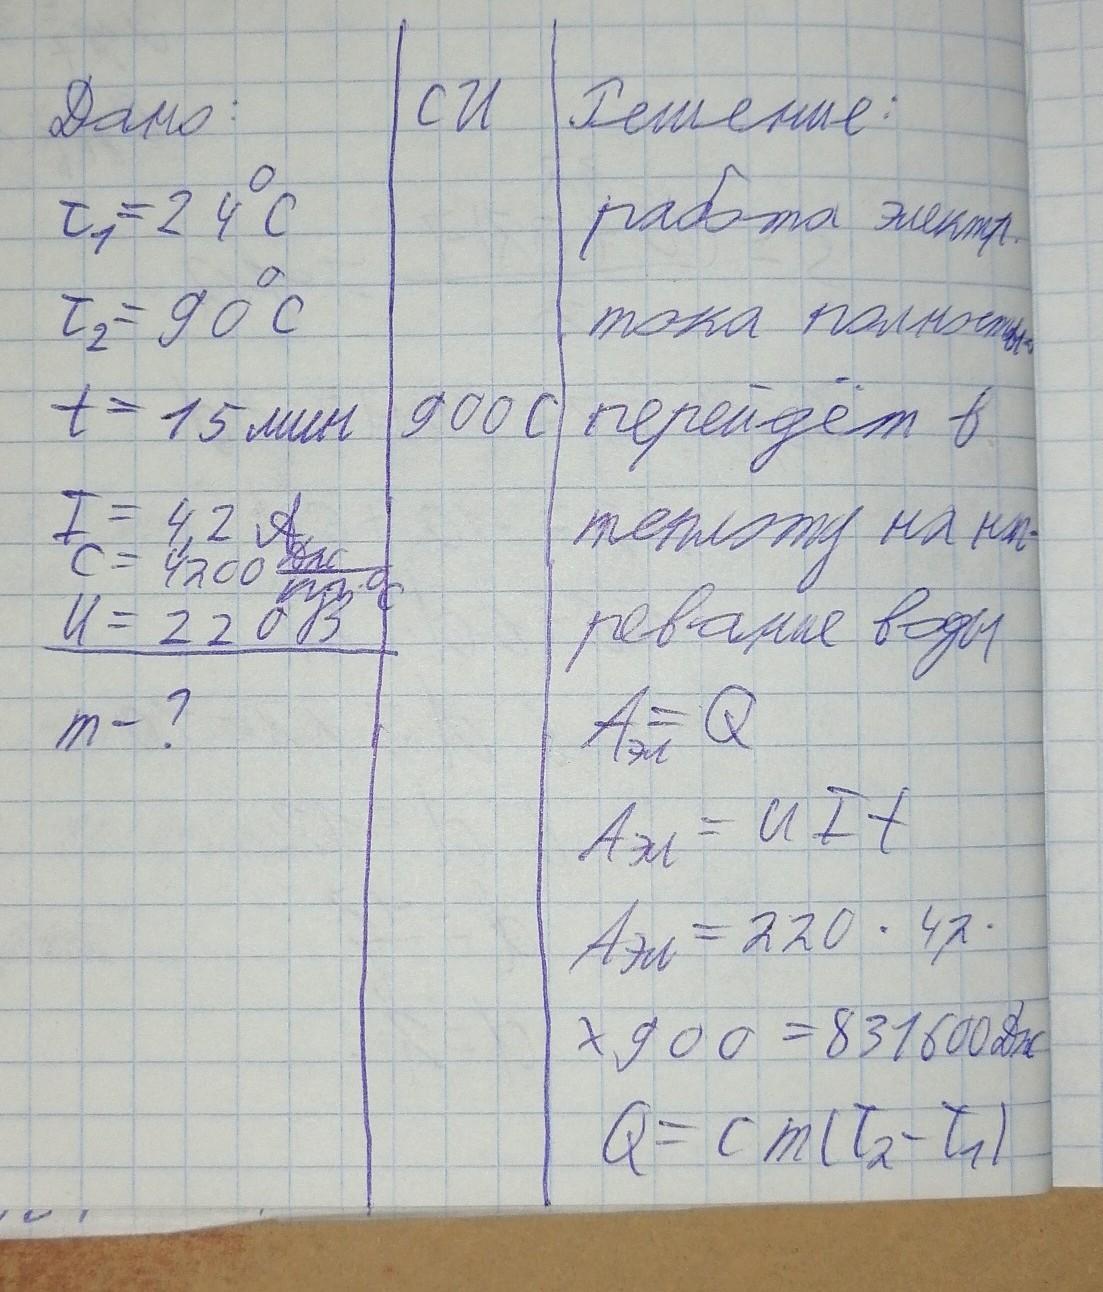 Дано:
τ₁ = 24°C
τ₂ = 90°C
t = 15 мин
I = 4,2 А
c = 4200 Дж/кг·°C
U = 220 В
m - ?
СИ
900 С
Решение:
работа электр.
тока полностью
перейдёт в
теплоту на наг-
ревание воды
Aэл = Q
Aэл = UIt
Aэл = 220 · 4,2 ·
× 900 = 831600 Дж
Q = cm(τ₂ - τ₁)